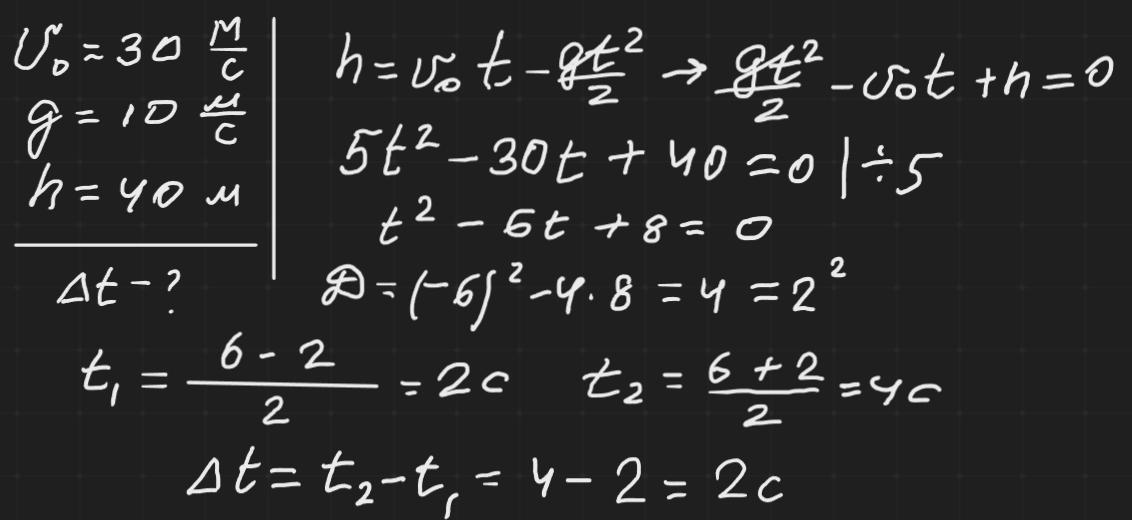 υ₀ = 30 м/с
g = 10 м/с
h = 40 м
Δt - ?
h = υ₀t - gt²/2 → gt²/2 - υ₀t + h = 0
5t² - 30t + 40 = 0 | ÷5
t² - 6t + 8 = 0
D = (-6)² - 4·8 = 4 = 2²
t₁ = (6 - 2)/2 = 2с t₂ = (6 + 2)/2 = 4с
Δt = t₂ - t₁ = 4 - 2 = 2с